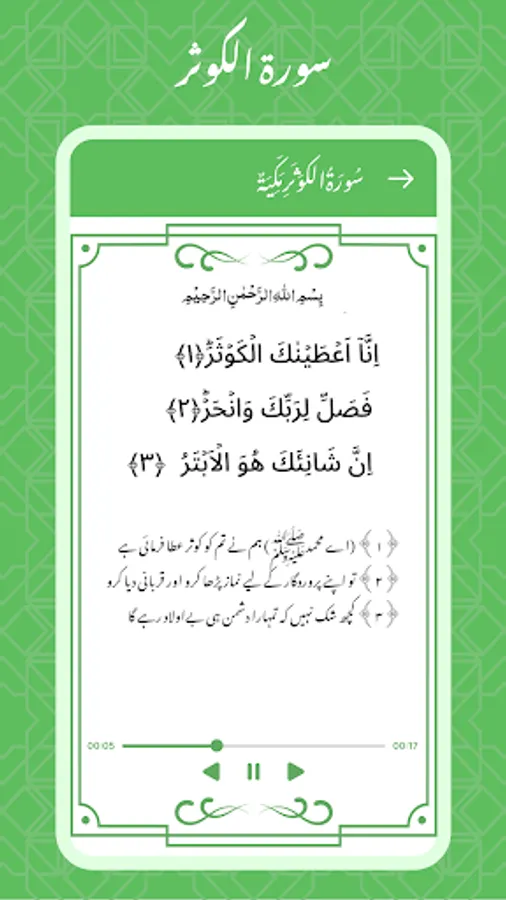 سورۃ الکوثر
سُورَةُ الْكَوْثَرِ مَكِّيَةٌ
بِسْمِ اللّٰهِ الرَّحْمٰنِ الرَّحِيْمِ
اِنَّاۤ اَعْطَيْنٰكَ الْكَوْثَرَؕ﴿۱﴾
فَصَلِّ لِرَبِّكَ وَانْحَرْؕ﴿۲﴾
اِنَّ شَانِئَكَ هُوَ الْاَبْتَرُ ﴿۳﴾
﴿۱﴾ (اے محمدﷺ) ہم نے تم کو کوثر عطا فرمائی ہے
﴿۲﴾ تو اپنے پروردگار کے لیے نماز پڑھا کرو اور قربانی دیا کرو
﴿۳﴾ کچھ شک نہیں کہ تمہارا دشمن ہی بے اولاد رہے گا
00:05 00:17